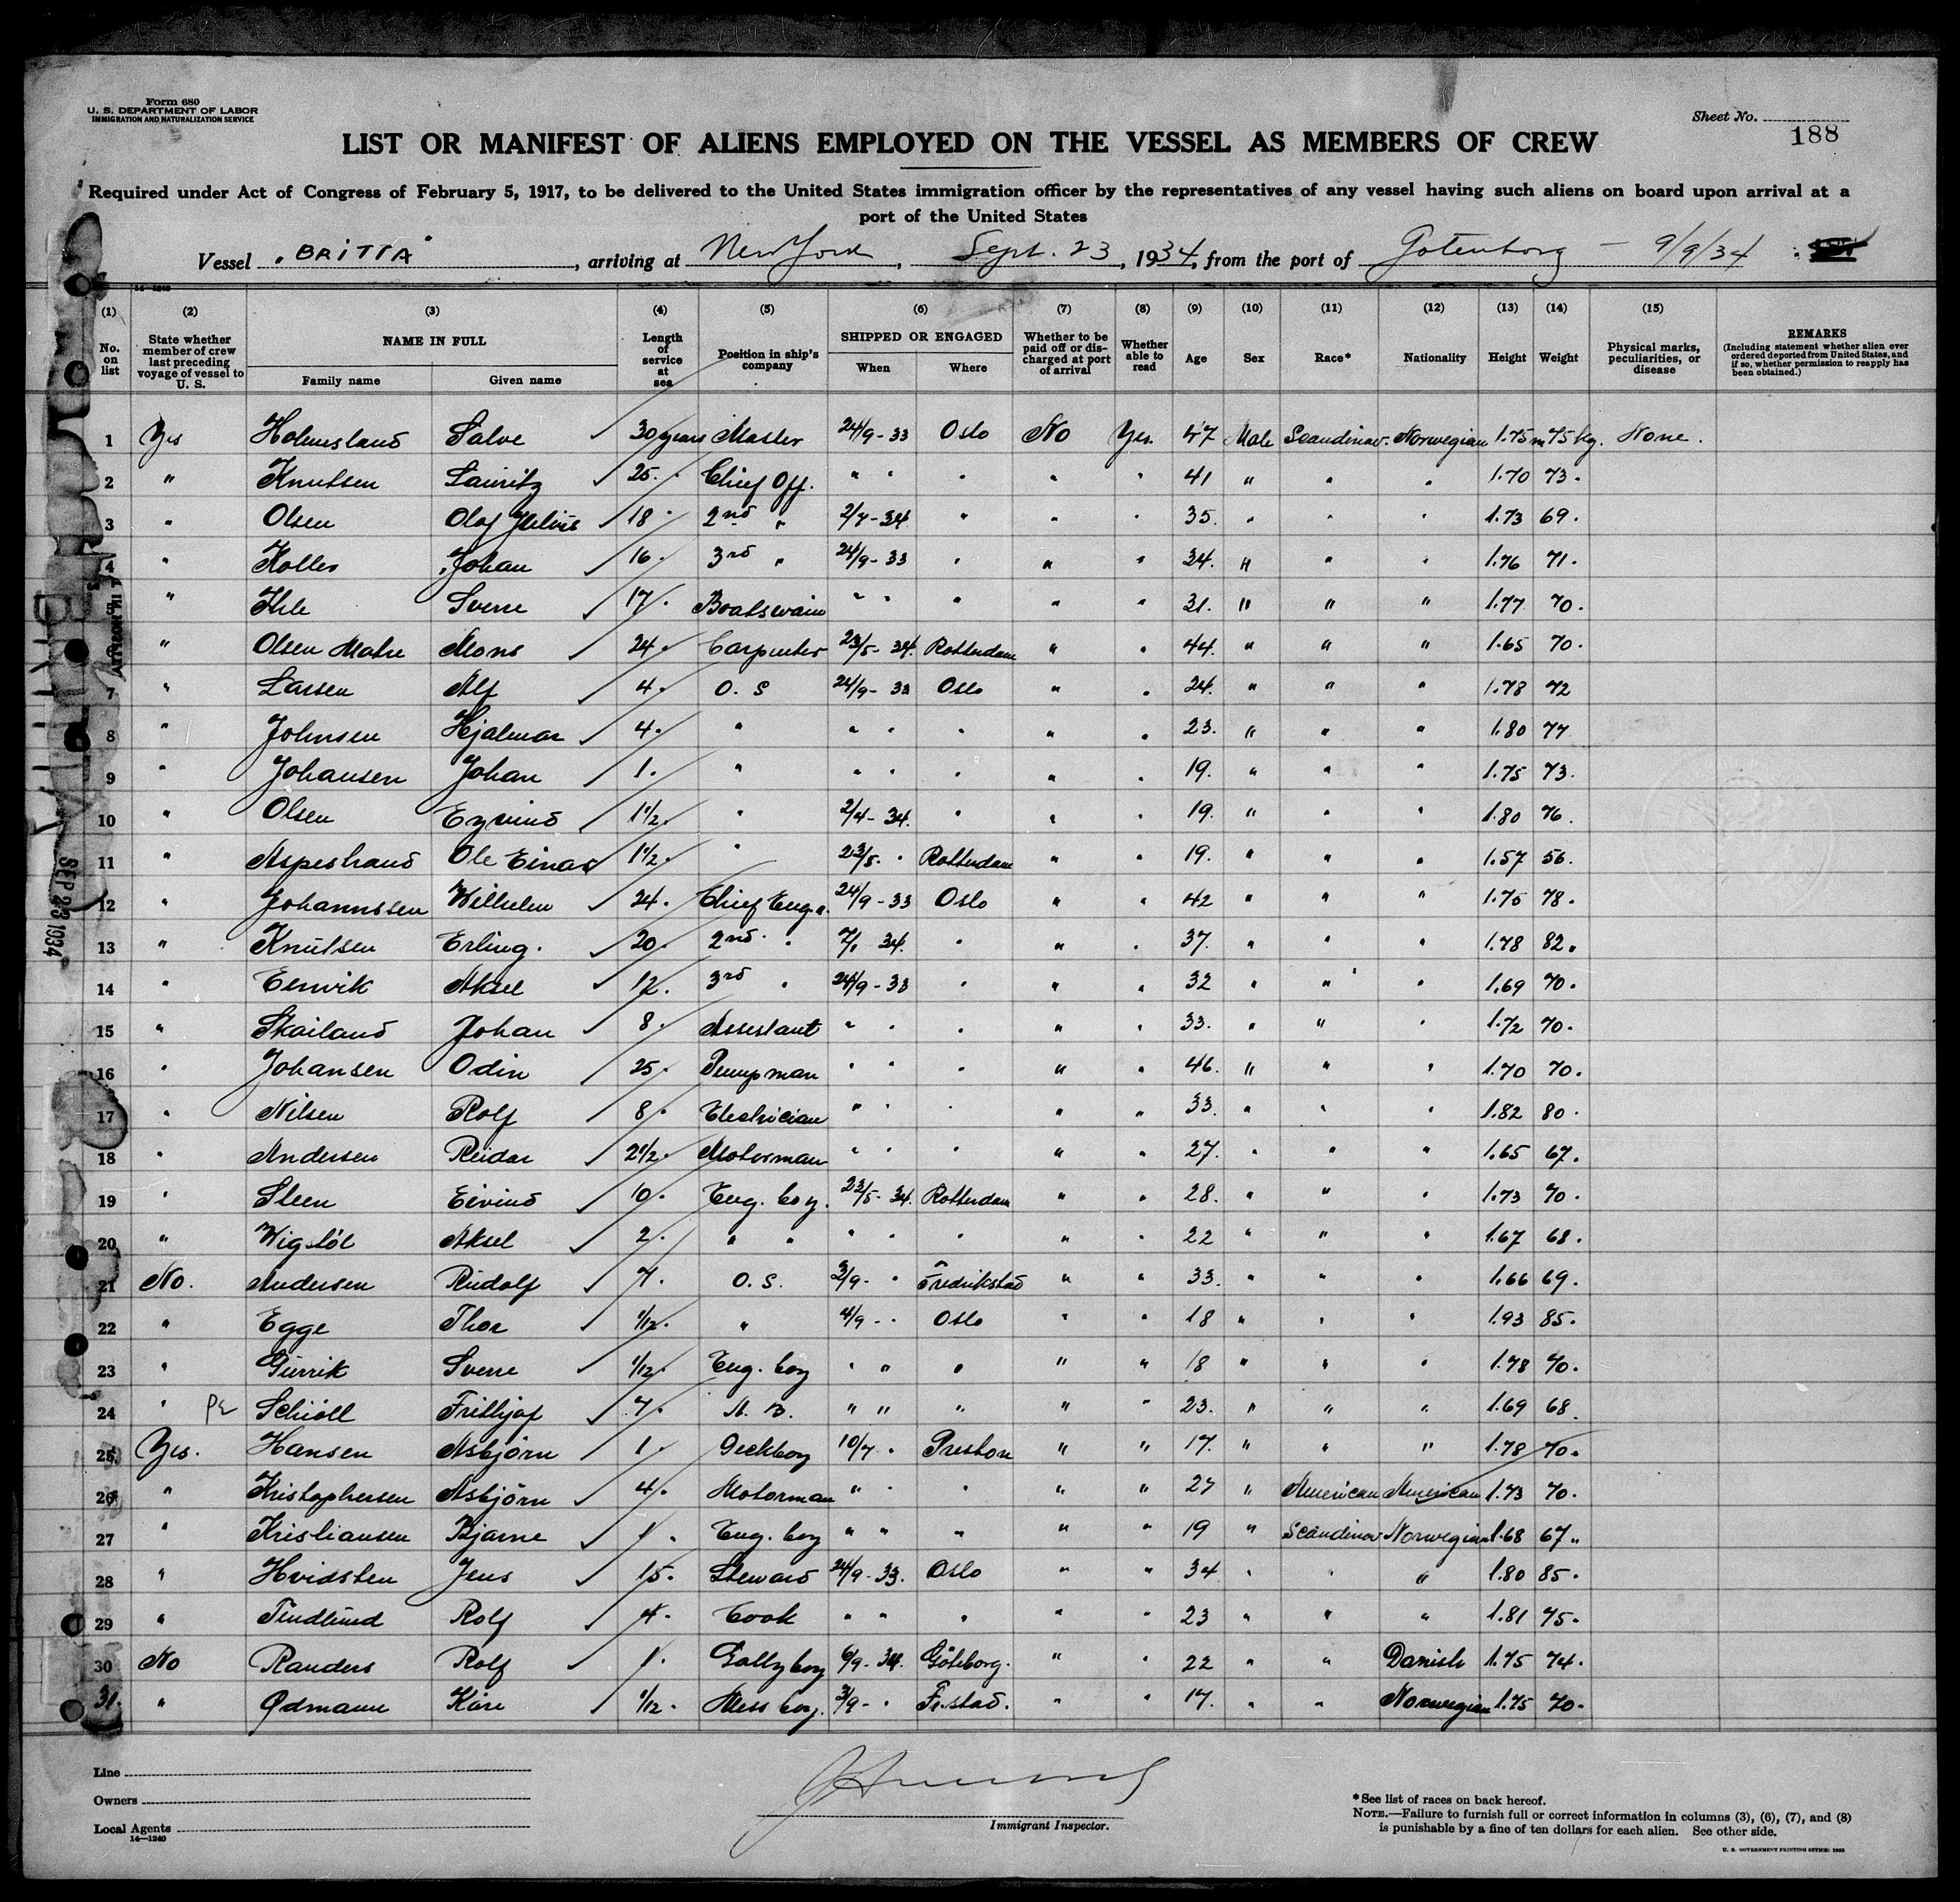 Form 680
U. S. DEPARTMENT OF LABOR
IMMIGRATION AND NATURALIZATION SERVICE
Sheet No.
188
LIST OR MANIFEST OF ALIENS EMPLOYED ON THE VESSEL AS MEMBERS OF CREW
Required under Act of Congress of February 5, 1917, to be delivered to the United States immigration officer by the representatives of any vessel having such aliens on board upon arrival at a
port of the United States
Vessel "BRITTA", arriving at New York, Sept. 23, 1934, from the port of Gotenborg - 9/9/34
14-1240
(1) (2) (3) (4) (5) (6) (7) (8) (9) (10) (11) (12) (13) (14) (15)
No. on list
State whether member of crew last preceding voyage of vessel to U. S.
NAME IN FULL
Family name Given name
Length of service at sea
Position in ship's company
SHIPPED OR ENGAGED
When Where
Whether to be paid off or discharged at port of arrival
Whether able to read
Age Sex Race* Nationality Height Weight
Physical marks, peculiarities, or disease
REMARKS
(Including statement whether alien ever ordered deported from United States, and if so, whether permission to reapply has been obtained.)
1 Yes Holmesland Salve 30 years Master 24/9-33 Oslo No Yes. 47 Male Scandinav. Norwegian 1.75 m 75 kg. None.
2 " Knutsen Lauritz 25. Chief Off. " " " " " 41 " " " 1.70 73.
3 " Olsen Olaf Julius 18 2nd " 2/7-34 " " " 35. " " " 1.73 69.
4 " Kolles Johan 16. 3rd " 24/9-33 " " " 34. " " " 1.76 71.
" Ihle Sverre 17. Boatswain " " " " " 31. " " " 1.77 70.
" Olsen Matre Mons 24. Carpenter 23/5-34. Rotterdam " " 44. " " " 1.65 70.
7 " Larsen Alf 4. O. S 24/9-33 Oslo " " 24. " " " 1.78 72
8 " Johnsen Hjalmar 4. " " " " " " 23. " " " 1.80 77
9 " Johansen Johan 1. " " " " " " 19. " " " 1.75 73.
10 " Olsen Eyvind 1 1/2. " 2/4-34. " " " 19. " " " 1.80 76.
11 " Aspestrand Ole Einar 1 1/2. " 23/5. " Rotterdam " " 19. " " " 1.57 56.
12 " Johannssen Wilhelm 24. Chief Eng. 24/9-33 Oslo " " 42 " " " 1.75 78.
13 " Knutsen Erling. 20. 2nd " 7/1 34. " " " 37. " " " 1.78 82.
14 " Eenvik Aksel 12. 3rd " 24/9-33 " " " 32 " " " 1.69 70.
15 " Skailand Johan 8. Assestant " " " " " 33. " " " 1.72 70.
16 " Johansen Odin 25. Pumpman " " " " " 46. " " " 1.70 70.
17 " Nilsen Rolf 8. Electrician " " " " " 33. " " " 1.82 80.
18 " Andersen Reidar 2 1/2. Motorman " " " " " 27. " " " 1.65 67.
19 " Steen Eivind 10. Eng. boy. 23/5-34. Rotterdam " " 28. " " " 1.73 70.
20 " Aksel 2. " " " " " " " 22 " " " 1.67 68.
21 No. Andersen Rudolf 7. O. S. 3/9- " Fredrikstad " " 33. " " " 1.66 69.
22 " Egge Thor 1/12. " 4/9- " Oslo " " 18 " " " 1.93 85.
23 " Gurrik Sverre 1/12. Eng. boy " " " " " 18 " " " 1.78 70.
24 " Schiöll Frithjof 7. A. B. " " " " " 23. " " " 1.69 68.
25 Yes. Hansen Asbjørn 1. Deckboy 10/7 " Preston " " 17. " " " 1.78 70.
26 " Kristophersen Asbjørn 4. Motorman " " " " " 27 " American American 1.73 70.
27 " Kristiansen Bjarne 1. Eng. boy " " " " " 19 " Scandinav Norwegian 1.68 67.
28 " Hvidsten Jens 15. Steward 24/9-33. Oslo " " 34 " " " 1.80 85.
29 " Tindlund Rolf 4. Cook " " " " " 23 " " " 1.81 75.
30 No Randers Rolf 1. Gallyboy 6/9-34. Göteborg. " " 22 " " Danish 1.75 74.
31. " Ødmann Kåre 1/12. Mess boy. 3/9- " Fr.stad. " " 17. " " Norwegian 1.75 70.
SEP 23 1934
Line
Owners
Local Agents
14-1240
Immigrant Inspector.
*See list of races on back hereof.
NOTE.—Failure to furnish full or correct information in columns (3), (6), (7), and (8)
is punishable by a fine of ten dollars for each alien. See other side.
U. S. GOVERNMENT PRINTING OFFICE: 1933